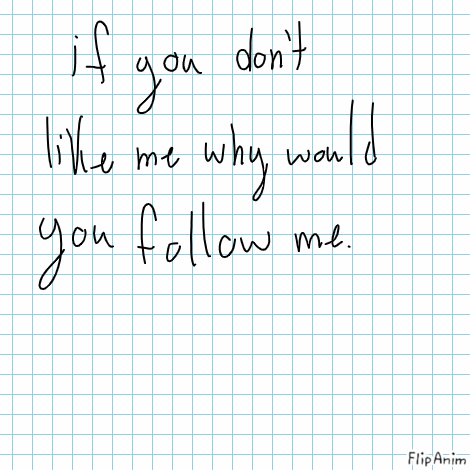 if you don't
like me why would
you follow me.
FlipAnim